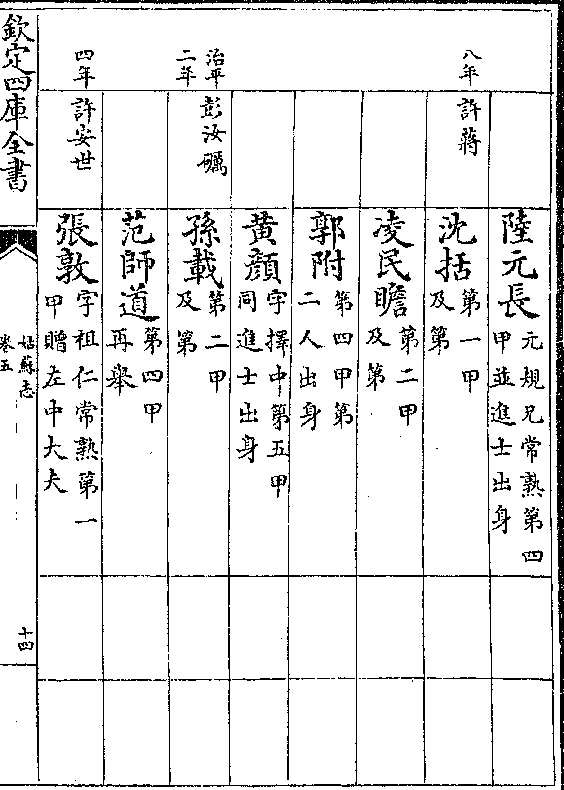 陸元長 元規兄常熟第四
甲並進士出身
八年 許蔣 沈括 第一甲
及第
凌民瞻 第二甲
及第
郭附 第四甲第
二人出身
黄顔 字擇中第五甲
同進士出身
治平
二年 彭汝礪 孫載 第二甲
及第
范師道 第四甲
再舉
四年 許安世 張敦 字祖仁常熟第一
甲贈左中大夫
欽定四庫全書
姑蘇志
卷五
十四